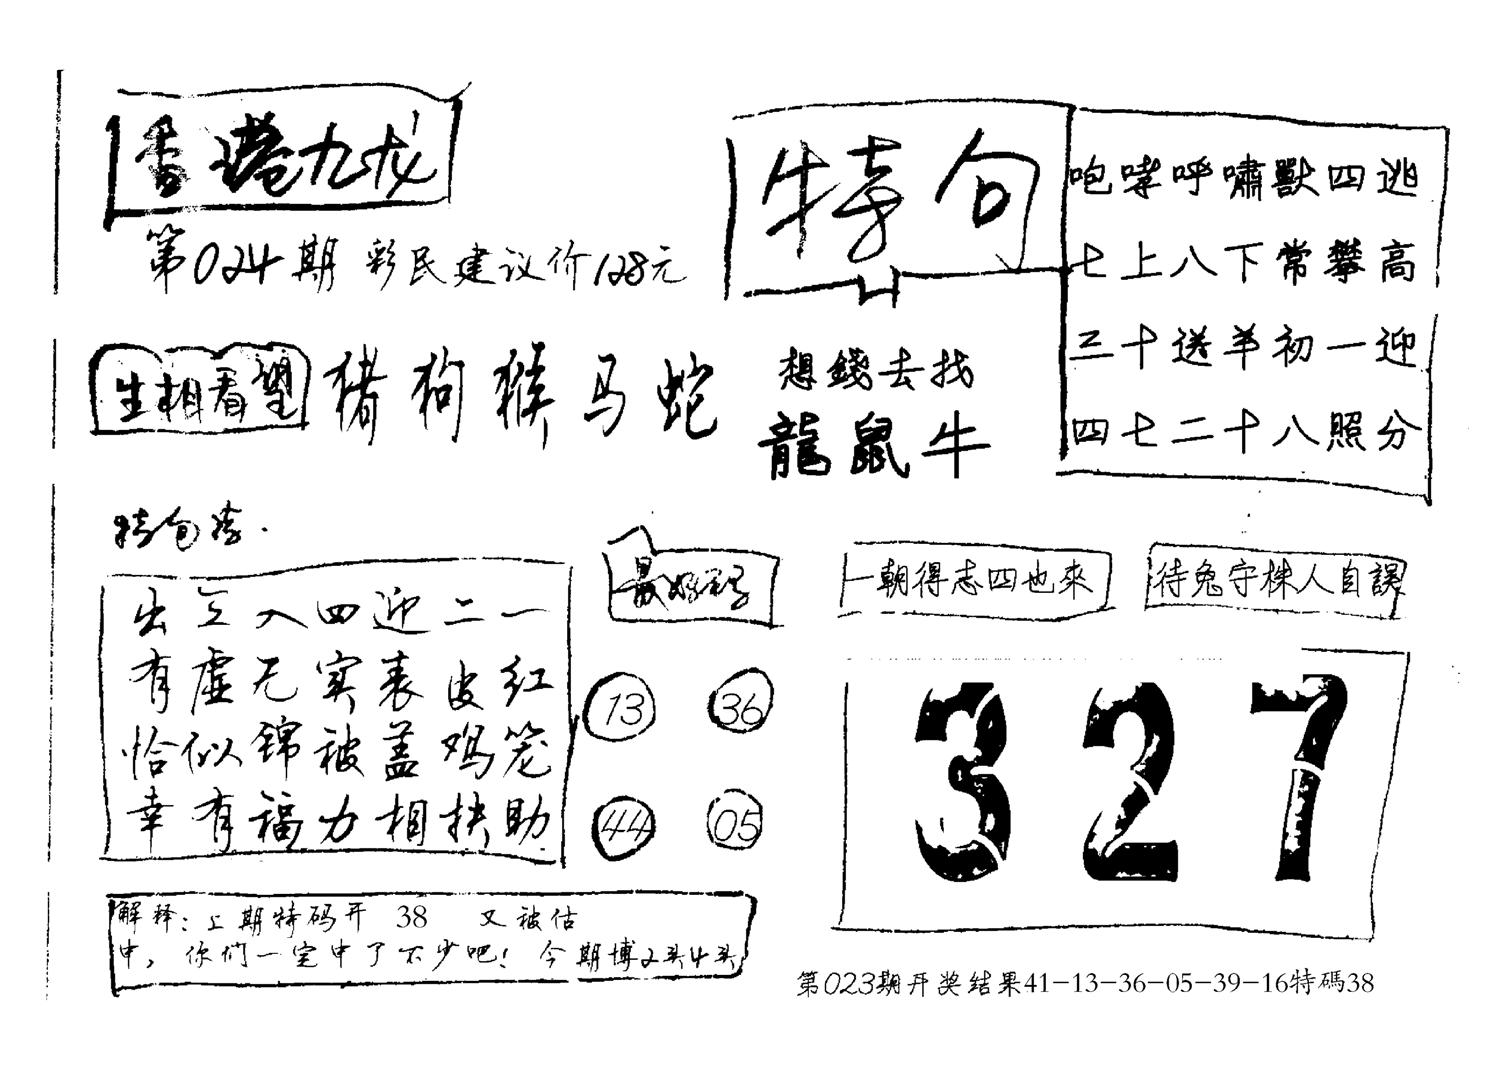 香港九龙
第024期 彩民建议价128元
特句
咆哮呼嘯獸四逃
七上八下常攀高
三十送羊初一迎
四七二十八照分
生相看望 猪狗猴马蛇
想錢去找
龍鼠牛
特句诗.
出三入四迎二一
有虚无实表皮红
恰似锦被盖鸡笼
幸有福力相扶助
最好码
13 36
44 05
一朝得志四也來
待兔守株人自誤
327
解释:上期特码开 38 又被估
中,你们一定中了不少吧!今期博2头4头
第023期开奖结果41-13-36-05-39-16特碼38